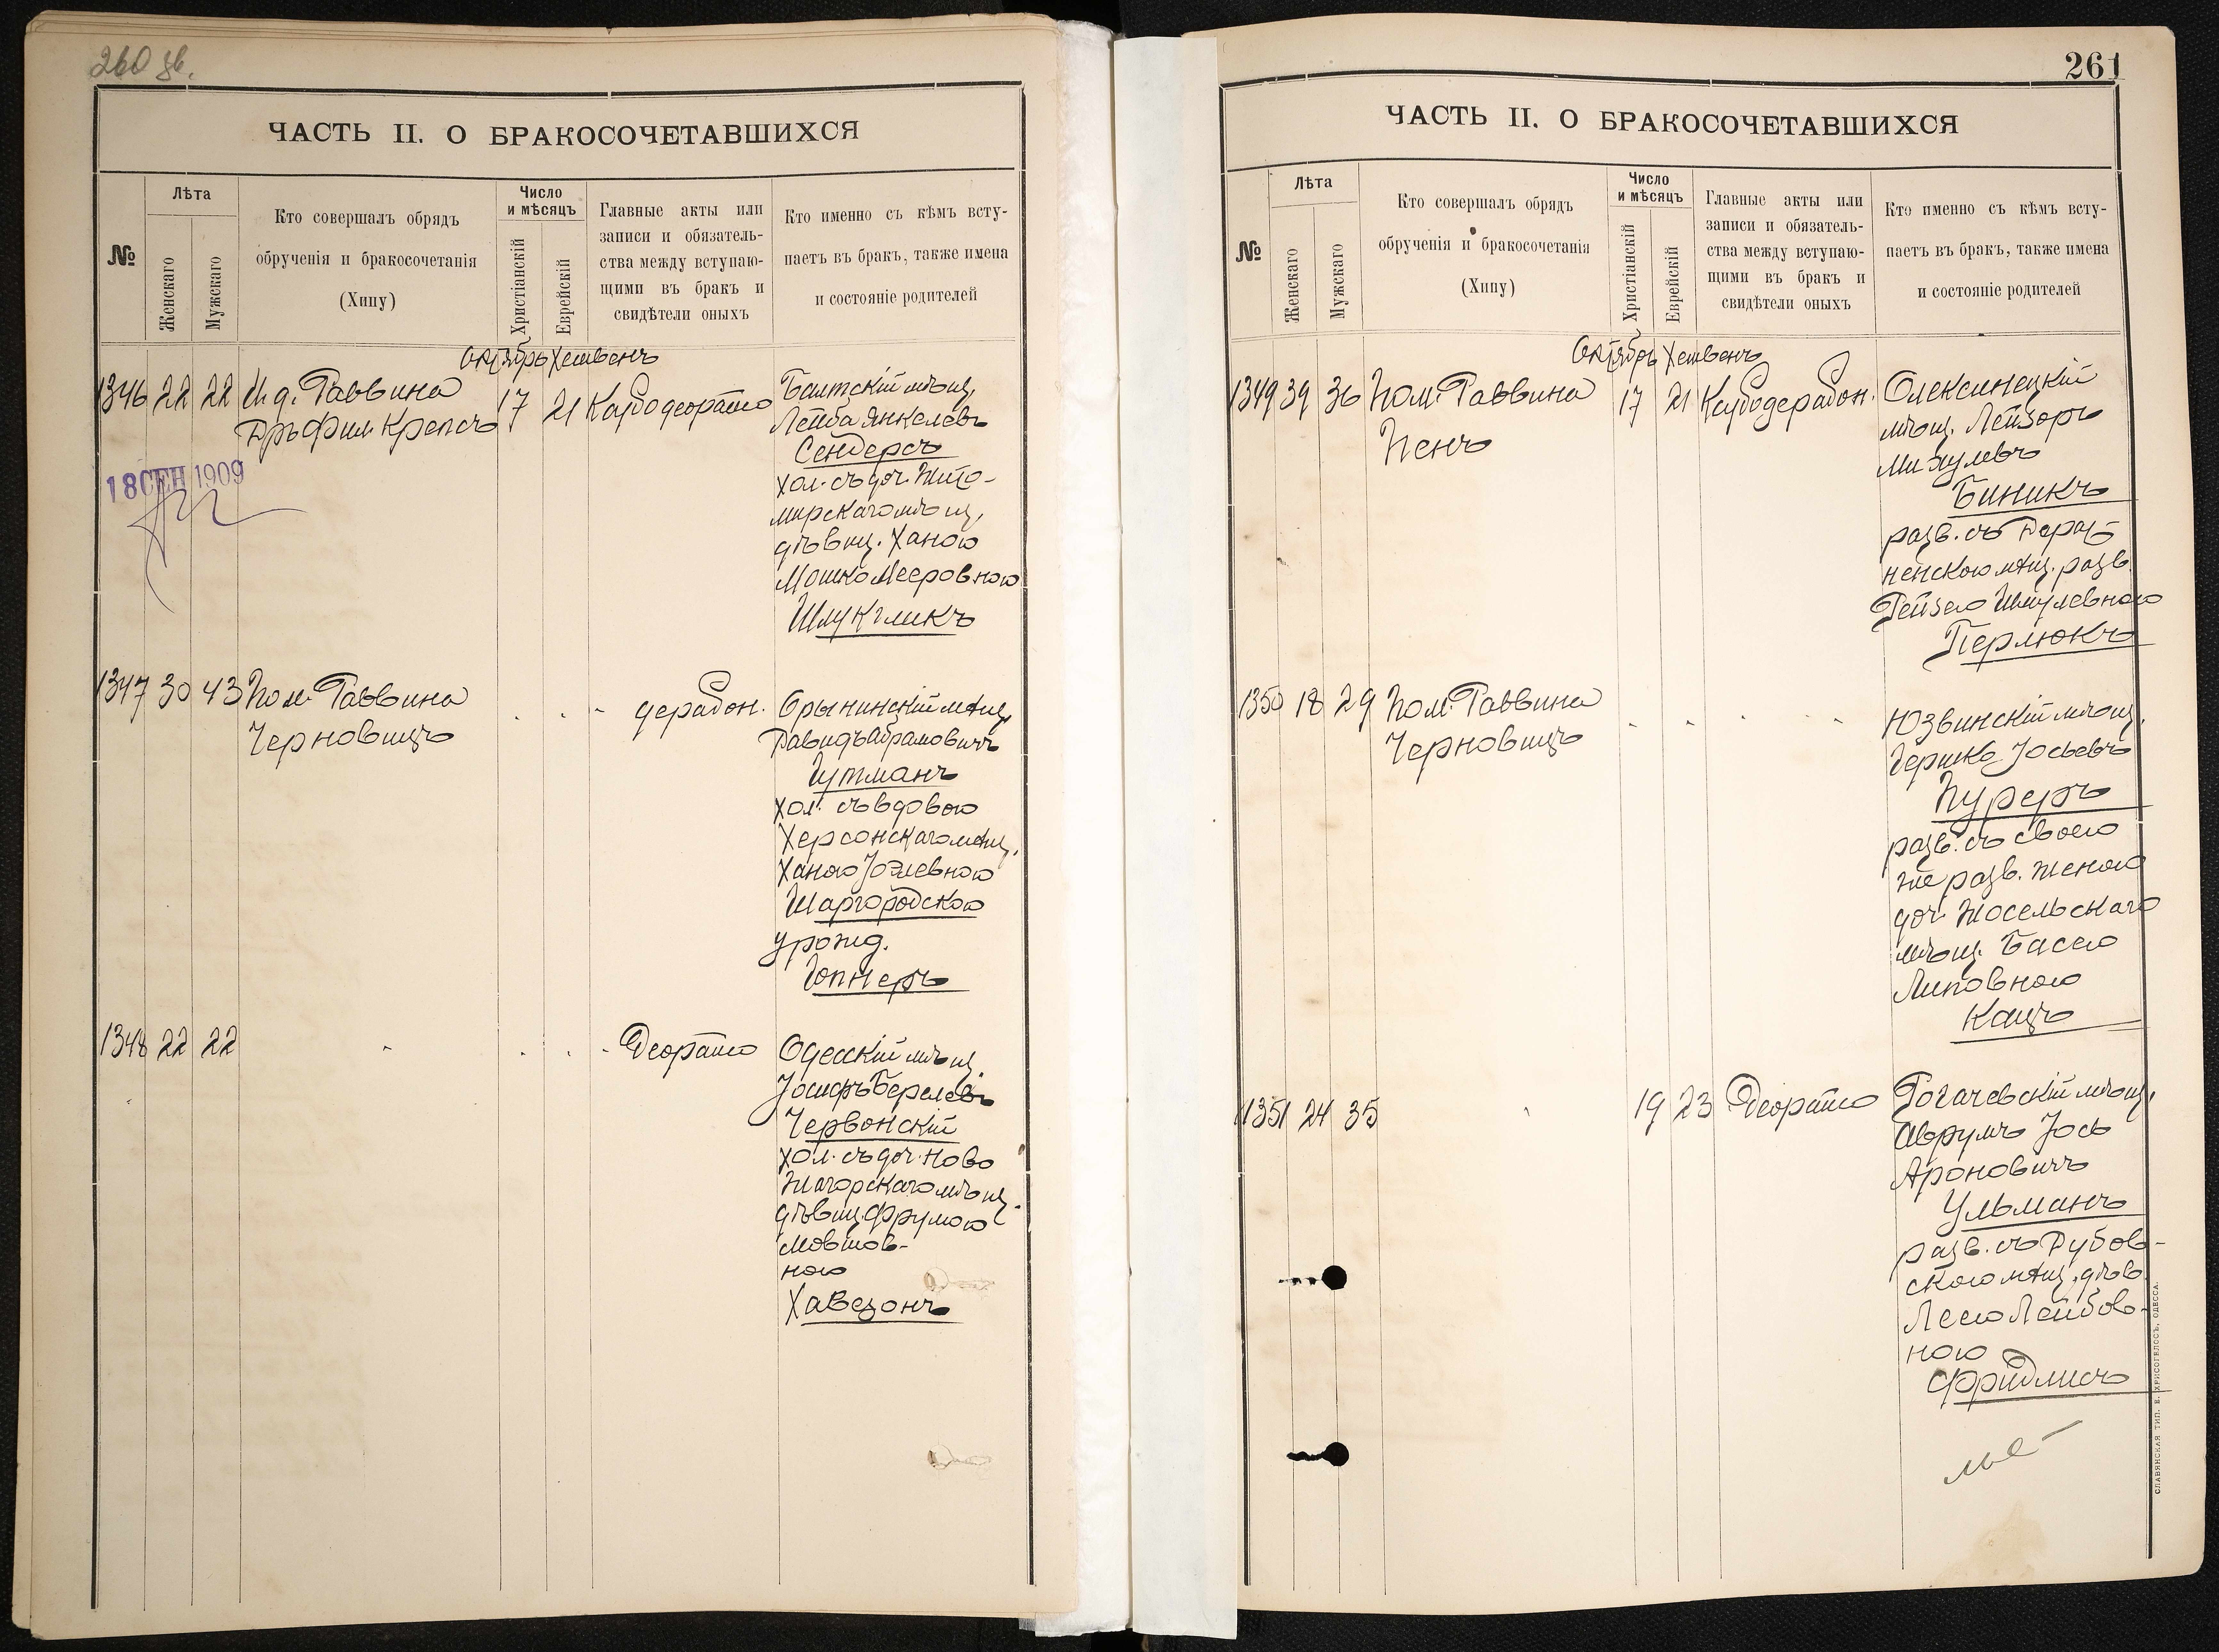 260 зв.
ЧАСТЬ II. О БРАКОСОЧЕТАВШИХСЯ
№
Лѣта
Женскаго
Мужскаго
Кто совершалъ обрядъ
обрученія и бракосочетанія
(Хипу)
Число
и мѣсяцъ
Христіанскій
Еврейскій
Главные акты или
записи и обязатель-
ства между вступаю-
щими въ бракъ и
свидѣтели оныхъ
Кто именно съ кѣмъ всту-
паетъ въ бракъ, также имена
и состояніе родителей
Октябрь Хешвенъ
1346 22 22 И д. Раввина 17 21
Дръ Фил. Крепсъ
18 СЕН 1909
Балтскій мѣщ.
Лейба Янкелевъ
Сендерсъ
хол. съ доч. Жито-
мирскаго мѣщ.
дѣвиц. Ханою
Мошко Мееровною
Шмукликъ
1347 30 43 Пом. Раввина
Черновицъ
Орынинскій мѣщ.
Давидъ Абрамовичъ
Гутманъ
хол. съ вдовою
Херсонскаго мѣщ.
Ханою Іоэлевною
Шаргородскою
урожд.
Гопнеръ
1348 22 22
Одесскій мѣщ.
Іосифъ Берелевъ
Червонскій
хол. съ доч. Ново
Жагорскаго мѣщ.
дѣвиц. Фрумою
Мовшов-
ною
Хавезонъ
261
ЧАСТЬ II. О БРАКОСОЧЕТАВШИХСЯ
№
Лѣта
Женскаго
Мужскаго
Кто совершалъ обрядъ
обрученія и бракосочетанія
(Хипу)
Число
и мѣсяцъ
Христіанскій
Еврейскій
Главные акты или
записи и обязатель-
ства между вступаю-
щими въ бракъ и
свидѣтели оныхъ
Кто именно съ кѣмъ всту-
паетъ въ бракъ, также имена
и состояніе родителей
Октябрь Хешвенъ
1349 39 36 Пом. Раввина 17 21
Пенъ
Олексинецкій
мѣщ. Лейзоръ
Михулевъ
Биникъ
разв. съ Дераж-
ненскою мѣщ. разв.
Рейзею Шмулевною
Перлюкъ
1350 18 29 Пом. Раввина
Черновицъ
Юзвинскій мѣщ.
Гершко Іосьевъ
Пуреръ
разв. съ своею
же разв. женою
доч. Жосельскаго
мѣщ. Басею
Липовною
Кацъ
1351 24 35 19 23
Рогачевскій мѣщ.
Аврумъ Іось
Ароновичъ
Ульманъ
разв. съ Дубов-
скою мѣщ. дѣв.
Леею Лейбов-
ною
Фридлисъ
СЛАВЯНСКАЯ ТИП. Е. ХРИСОГЕЛОСЪ, ОДЕССА.